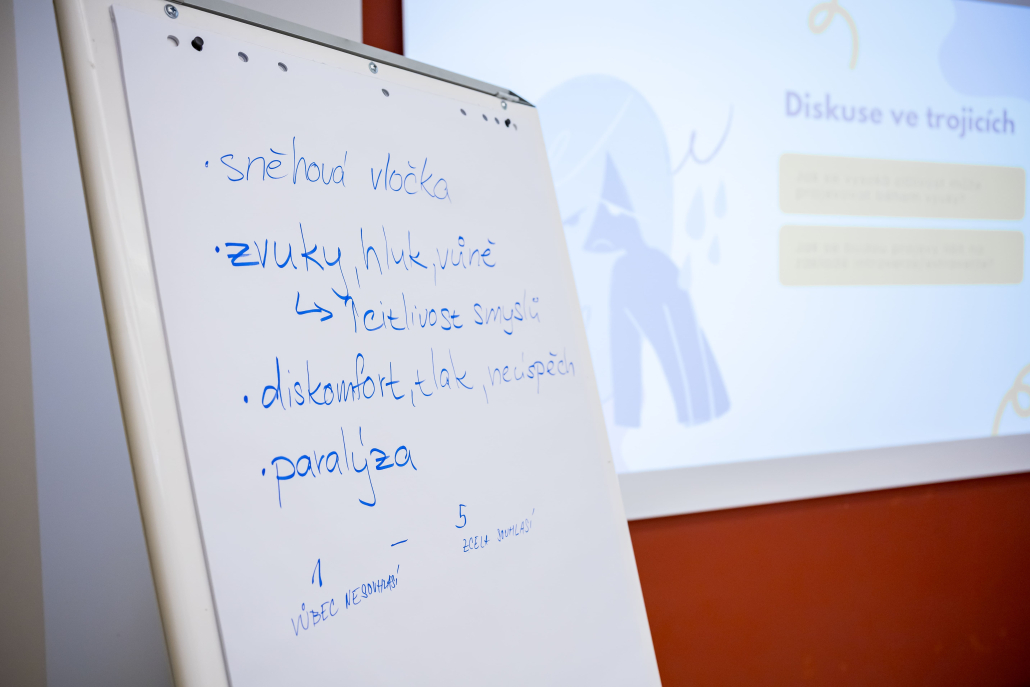 • sněhová vločka
• zvuky, hluk, vůně
↳ ↑citlivost smyslů
• diskomfort, tlak, neúspěch
• paralýza
1 – 5
VŮBEC NESOUHLASÍ ZCELA SOUHLASÍ
Diskuse ve trojicích